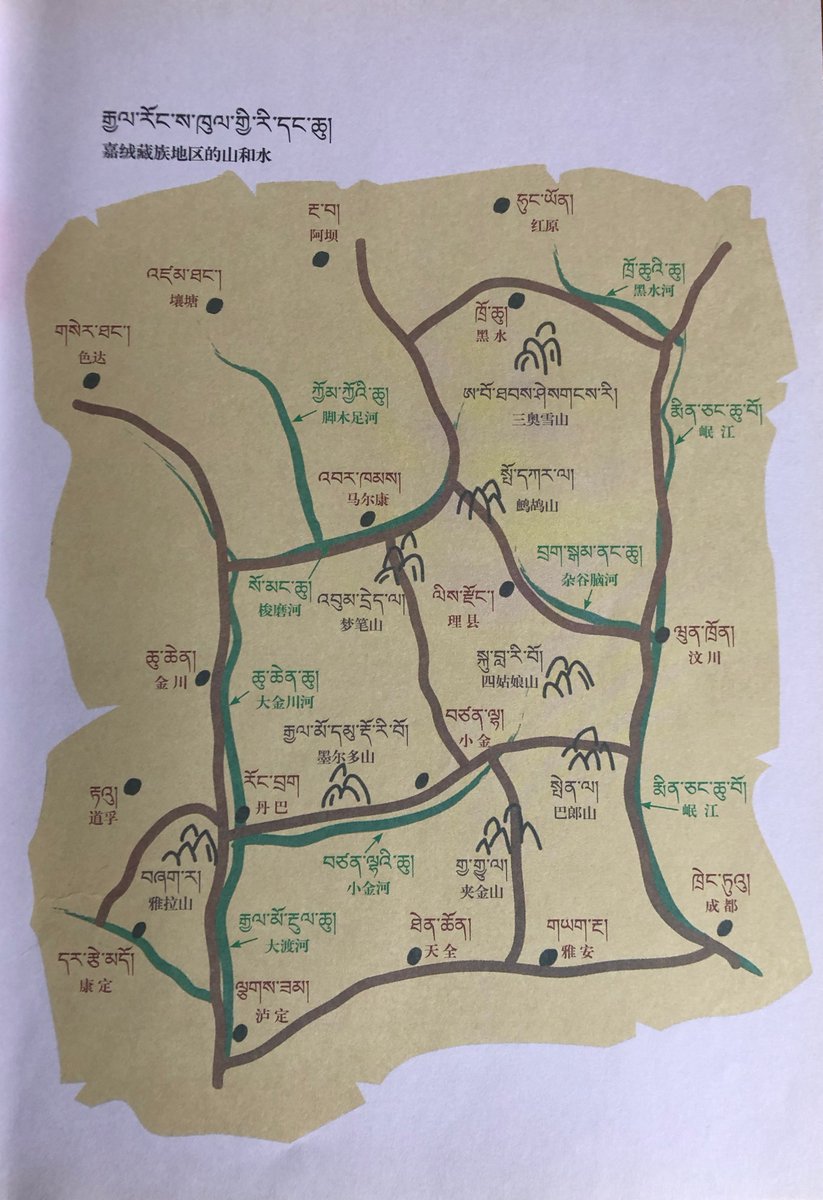 རྒྱལ་རོང་ས་ཁུལ་གྱི་རི་དང་ཆུ།
嘉绒藏族地区的山和水
རྔ་བ།
阿坝
ཧུང་ཡོན།
红原
འཛམ་ཐང་།
壤塘
ཁྲོ་ཆུའི་ཆུ།
黑水河
ཁྲོ་ཆུ།
黑水
གསེར་ཐང་།
色达
ཀྱོམ་ཀྱོའི་ཆུ།
脚木足河
ཨ་བོ་ཐབས་ཤེསགངས་རི།
三奥雪山
མིན་ཅང་ཆུ་བོ།
岷江
འབར་ཁམས།
马尔康
སྤོ་དཀར་ལ།
鹧鸪山
བྲག་སྒམ་ནང་ཆུ།
杂谷脑河
སོ་མང་ཆུ།
梭磨河
འབུམ་དྲེད་ལ།
梦笔山
ལིས་རྫོང་།
理县
ཝུན་ཁྲོན།
汶川
ཆུ་ཆེན།
金川
ཆུ་ཆེན་ཆུ།
大金川河
སྐུ་བླ་རི་བོ།
四姑娘山
བཙན་ལྷ།
小金
རྒྱལ་མོ་དམུ་རྡོ་རི་བོ།
墨尔多山
རྟའུ།
道孚
རོང་བྲག
丹巴
སྤེན་ལ།
巴郎山
མིན་ཅང་ཆུ་བོ།
岷江
བཙན་ལྷའི་ཆུ།
小金河
གྱ་གྱུ་ལ།
夹金山
བཞག་ར།
雅拉山
ཁྲེང་ཏུའུ།
成都
རྒྱལ་མོ་རྔུལ་ཆུ།
大渡河
ཐེན་ཚོན།
天全
གཡག་རྔ།
雅安
དར་རྩེ་མདོ།
康定
ལྕགས་ཟམ།
泸定